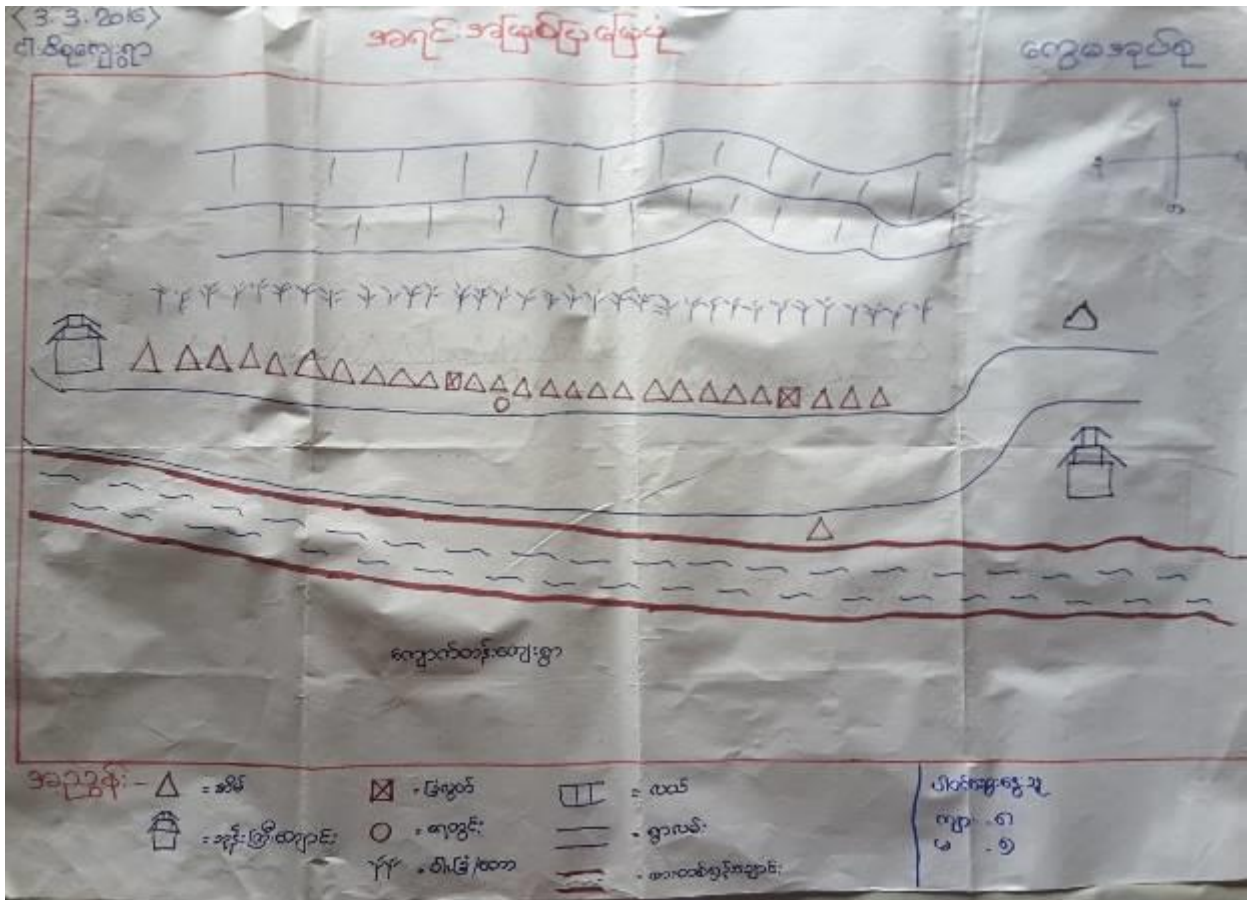 <3.3.2016)
ဝါးစိုကျေးရွာ
အရင်းအမြစ်ပြမြေပုံ
ကျွေမအုပ်စု
ကျောက်တန်းကျေးရွာ
အညွှန်း -
= အိမ်
= ဘုန်းကြီးကျောင်း
= ခြံလွတ်
= ရေတွင်း
= ဝါးခြံ/တော
= လယ်
= ရွာလမ်း
ပါဝင်ဆွေးနွေးသူ
ကျား - ၈
မ - ၅